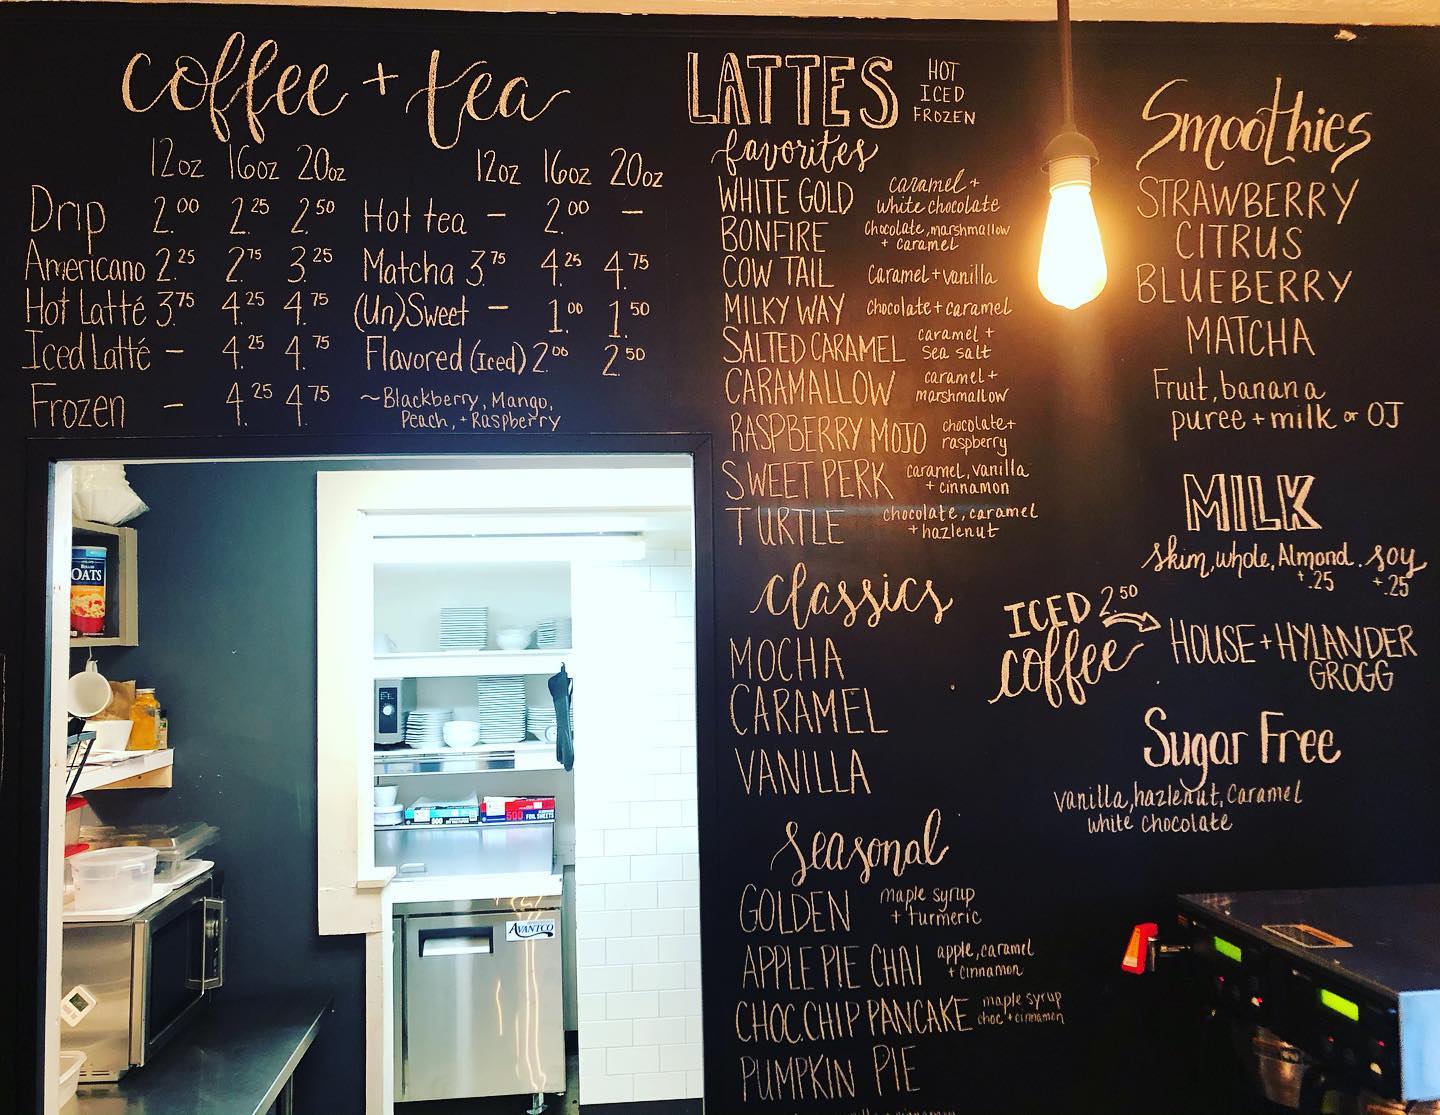 coffee + tea
12oz 16oz 20oz
Drip 2.00 2.25 2.50
Americano 2.25 2.75 3.25
Hot Latté 3.75 4.25 4.75
Iced Latté – 4.25 4.75
Frozen – 4.25 4.75
12oz 16oz 20oz
Hot tea – 2.00 –
Matcha 3.75 4.25 4.75
(Un)Sweet – 1.00 1.50
Flavored (Iced) 2.00 2.50
~Blackberry, Mango,
Peach, + Raspberry
LATTES
HOT
ICED
FROZEN
favorites
WHITE GOLD caramel +
white chocolate
BONFIRE chocolate, marshmallow
+ caramel
COW TAIL Caramel + vanilla
MILKY WAY chocolate + caramel
SALTED CARAMEL caramel +
sea salt
CARAMALLOW caramel +
marshmallow
RASPBERRY MOJO chocolate +
raspberry
SWEET PERK caramel, vanilla
+ cinnamon
TURTLE chocolate, caramel
+ hazlenut
classics
MOCHA
CARAMEL
VANILLA
seasonal
GOLDEN maple syrup
+ turmeric
APPLE PIE CHAI apple, caramel
+ cinnamon
CHOC.CHIP PANCAKE maple syrup
choc + cinnamon
PUMPKIN PIE
Smoothies
STRAWBERRY
CITRUS
BLUEBERRY
MATCHA
Fruit, banana
puree + milk or OJ
MILK
skim, whole, Almond, soy
+.25 +.25
ICED 2.50
coffee
HOUSE + HYLANDER
GROGG
Sugar Free
vanilla, hazlenut, Caramel
white chocolate
OATS
AVANTCO
500
FOIL SHEETS